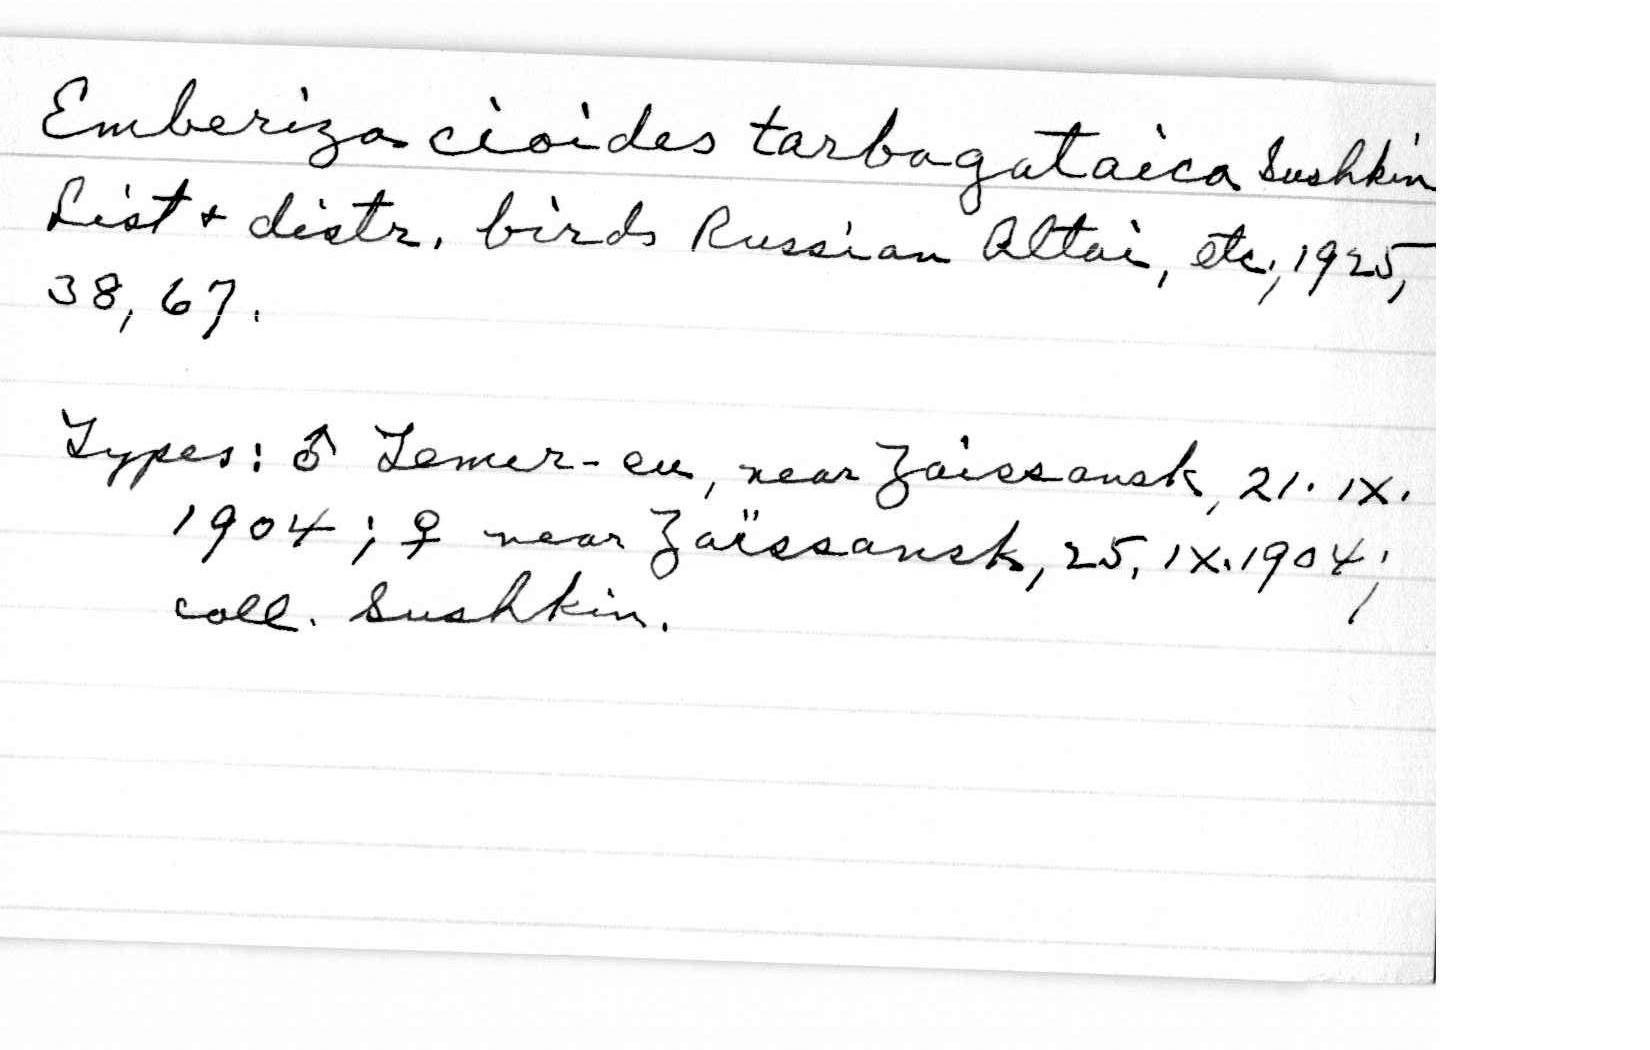 Emberiza cioides tarbagataica Sushkin
List + distr. birds Russian Altai, etc, 1925,
38, 67.
Types: ♂ Temir-su, near Zaissansk, 21. IX.
1904; ♀ near Zaïssansk, 25. IX. 1904;
coll. Sushkin.